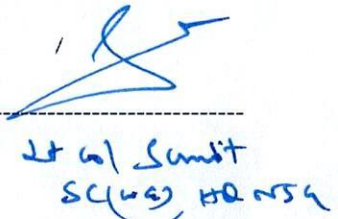 Lt Col Sumit
SC(WE) HQ NSG